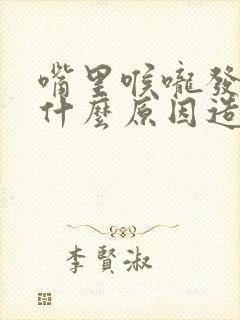 嘴里喉嚨發
什麼原因造
李賢淑